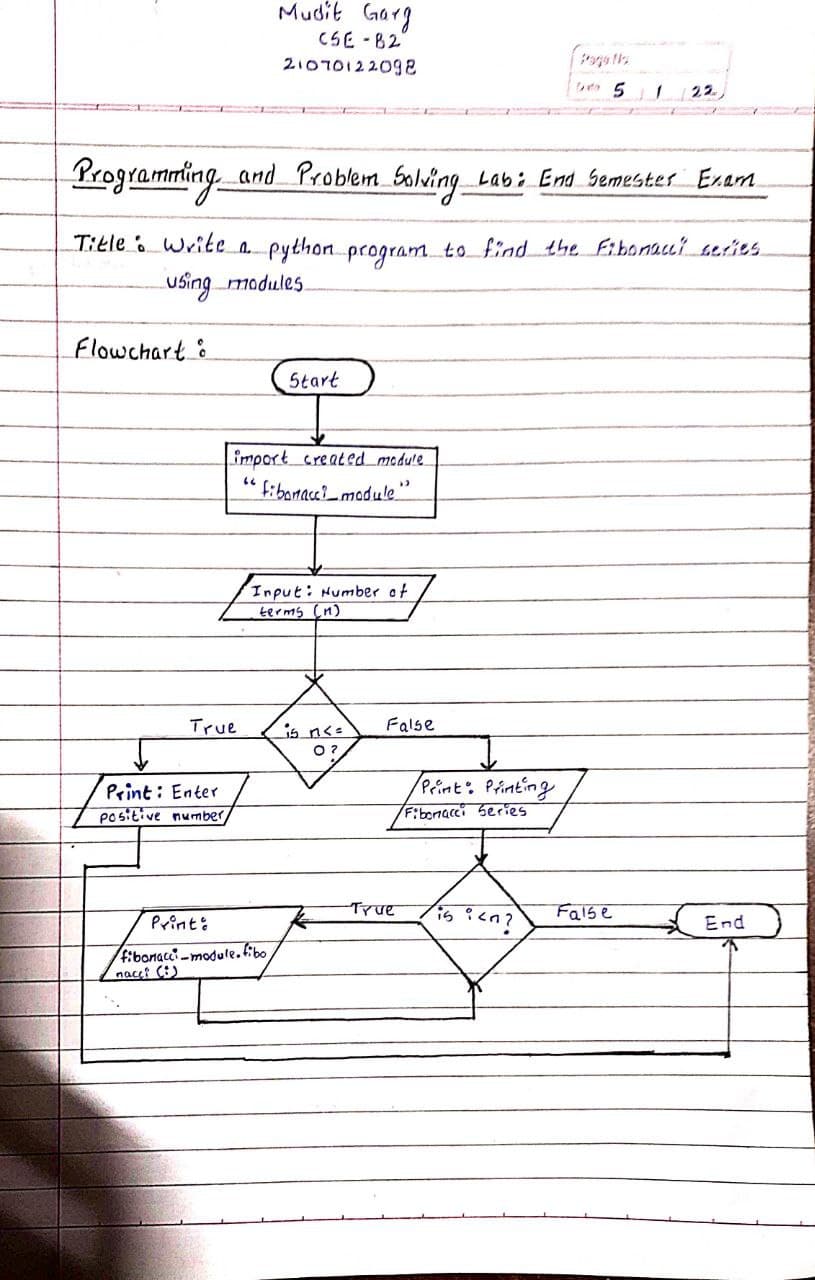 Mudit Garg
CSE - B2
21070122098
Page No.
Date 5 / 1 / 22
Programming and Problem Solving Lab: End Semester Exam
Title: Write a python program to find the Fibonacci series
using modules
Flowchart:
Start
import created module
"fibonacci_module"
Input: Number of
terms (n)
True
is n<=
0?
False
Print: Enter
positive number
Print: Printing
Fibonacci Series
True
is i<n?
False
End
Print:
fibonacci_module.fibo
nacci (i)